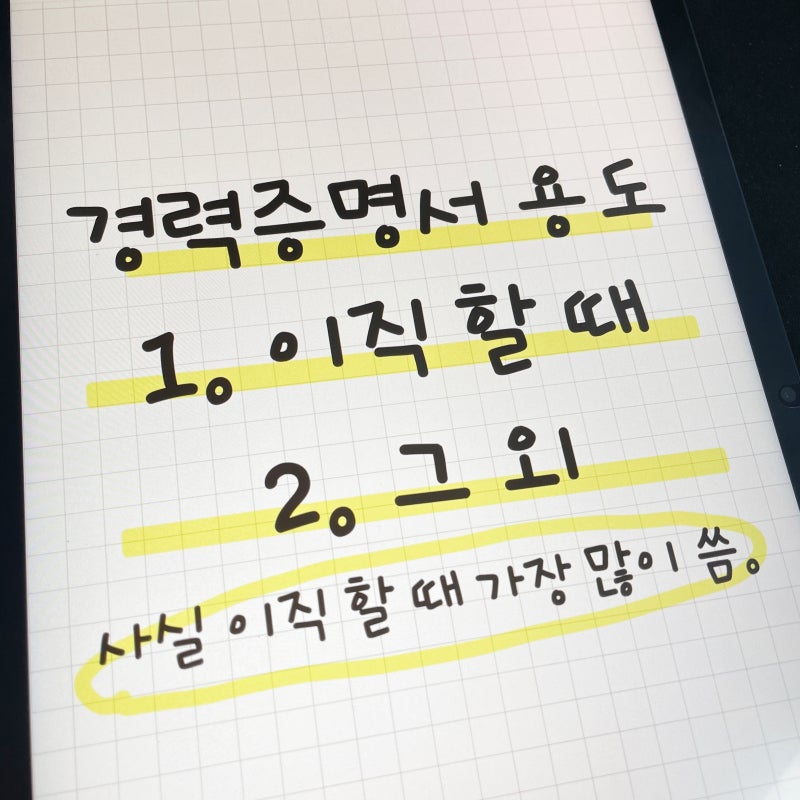 경력증명서 용도
1. 이직 할 때
2. 그 외
사실 이직 할 때 가장 많이 씀.